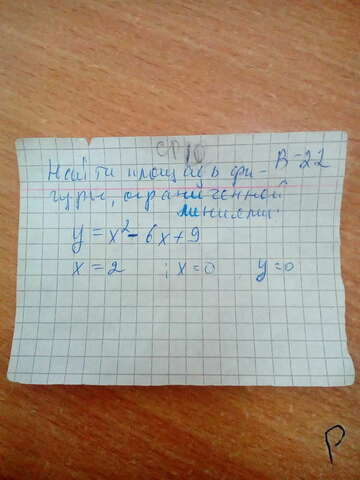 СР 10
Найти площадь фи- В-22
гуры, ограниченной
линиями:
y = x² - 6x + 9
x = 2 ; x = 0 y = 0
P